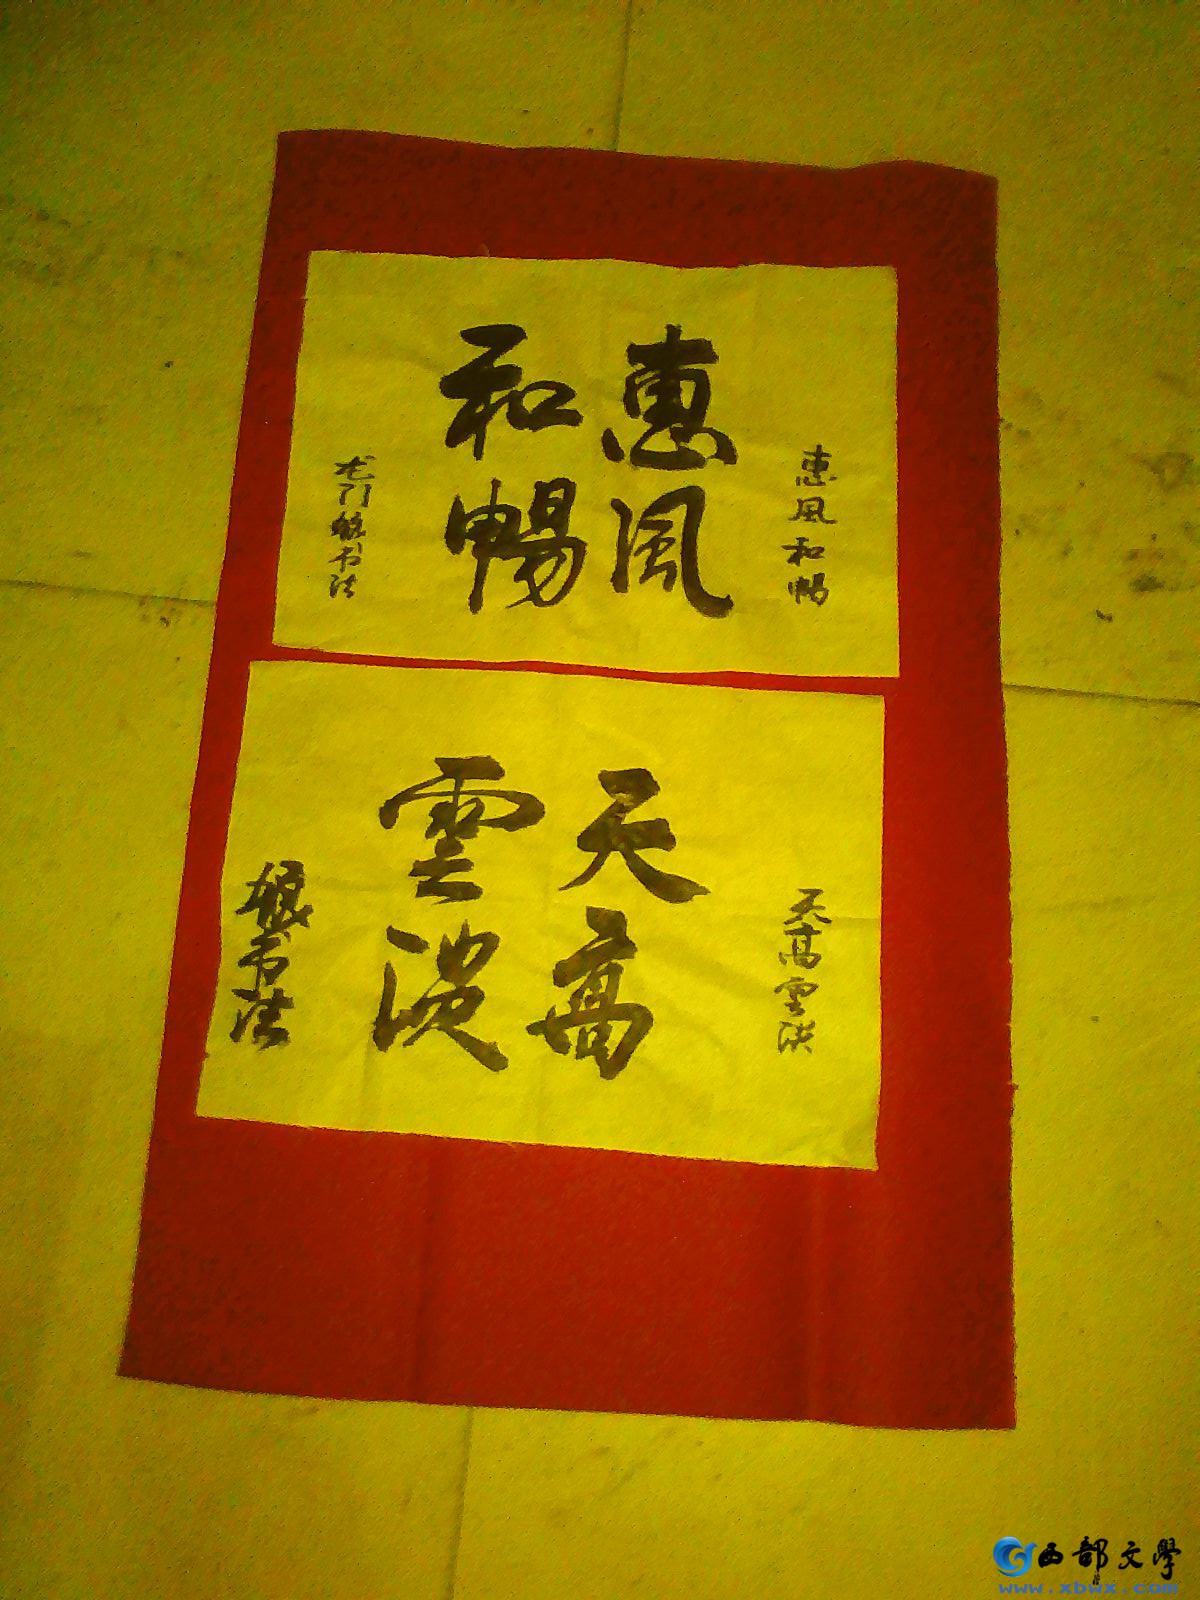 惠風
和暢
惠風和暢
龙门 书法
天高
雲淡
天高雲淡
书法
西部文學
www.xbwx.com